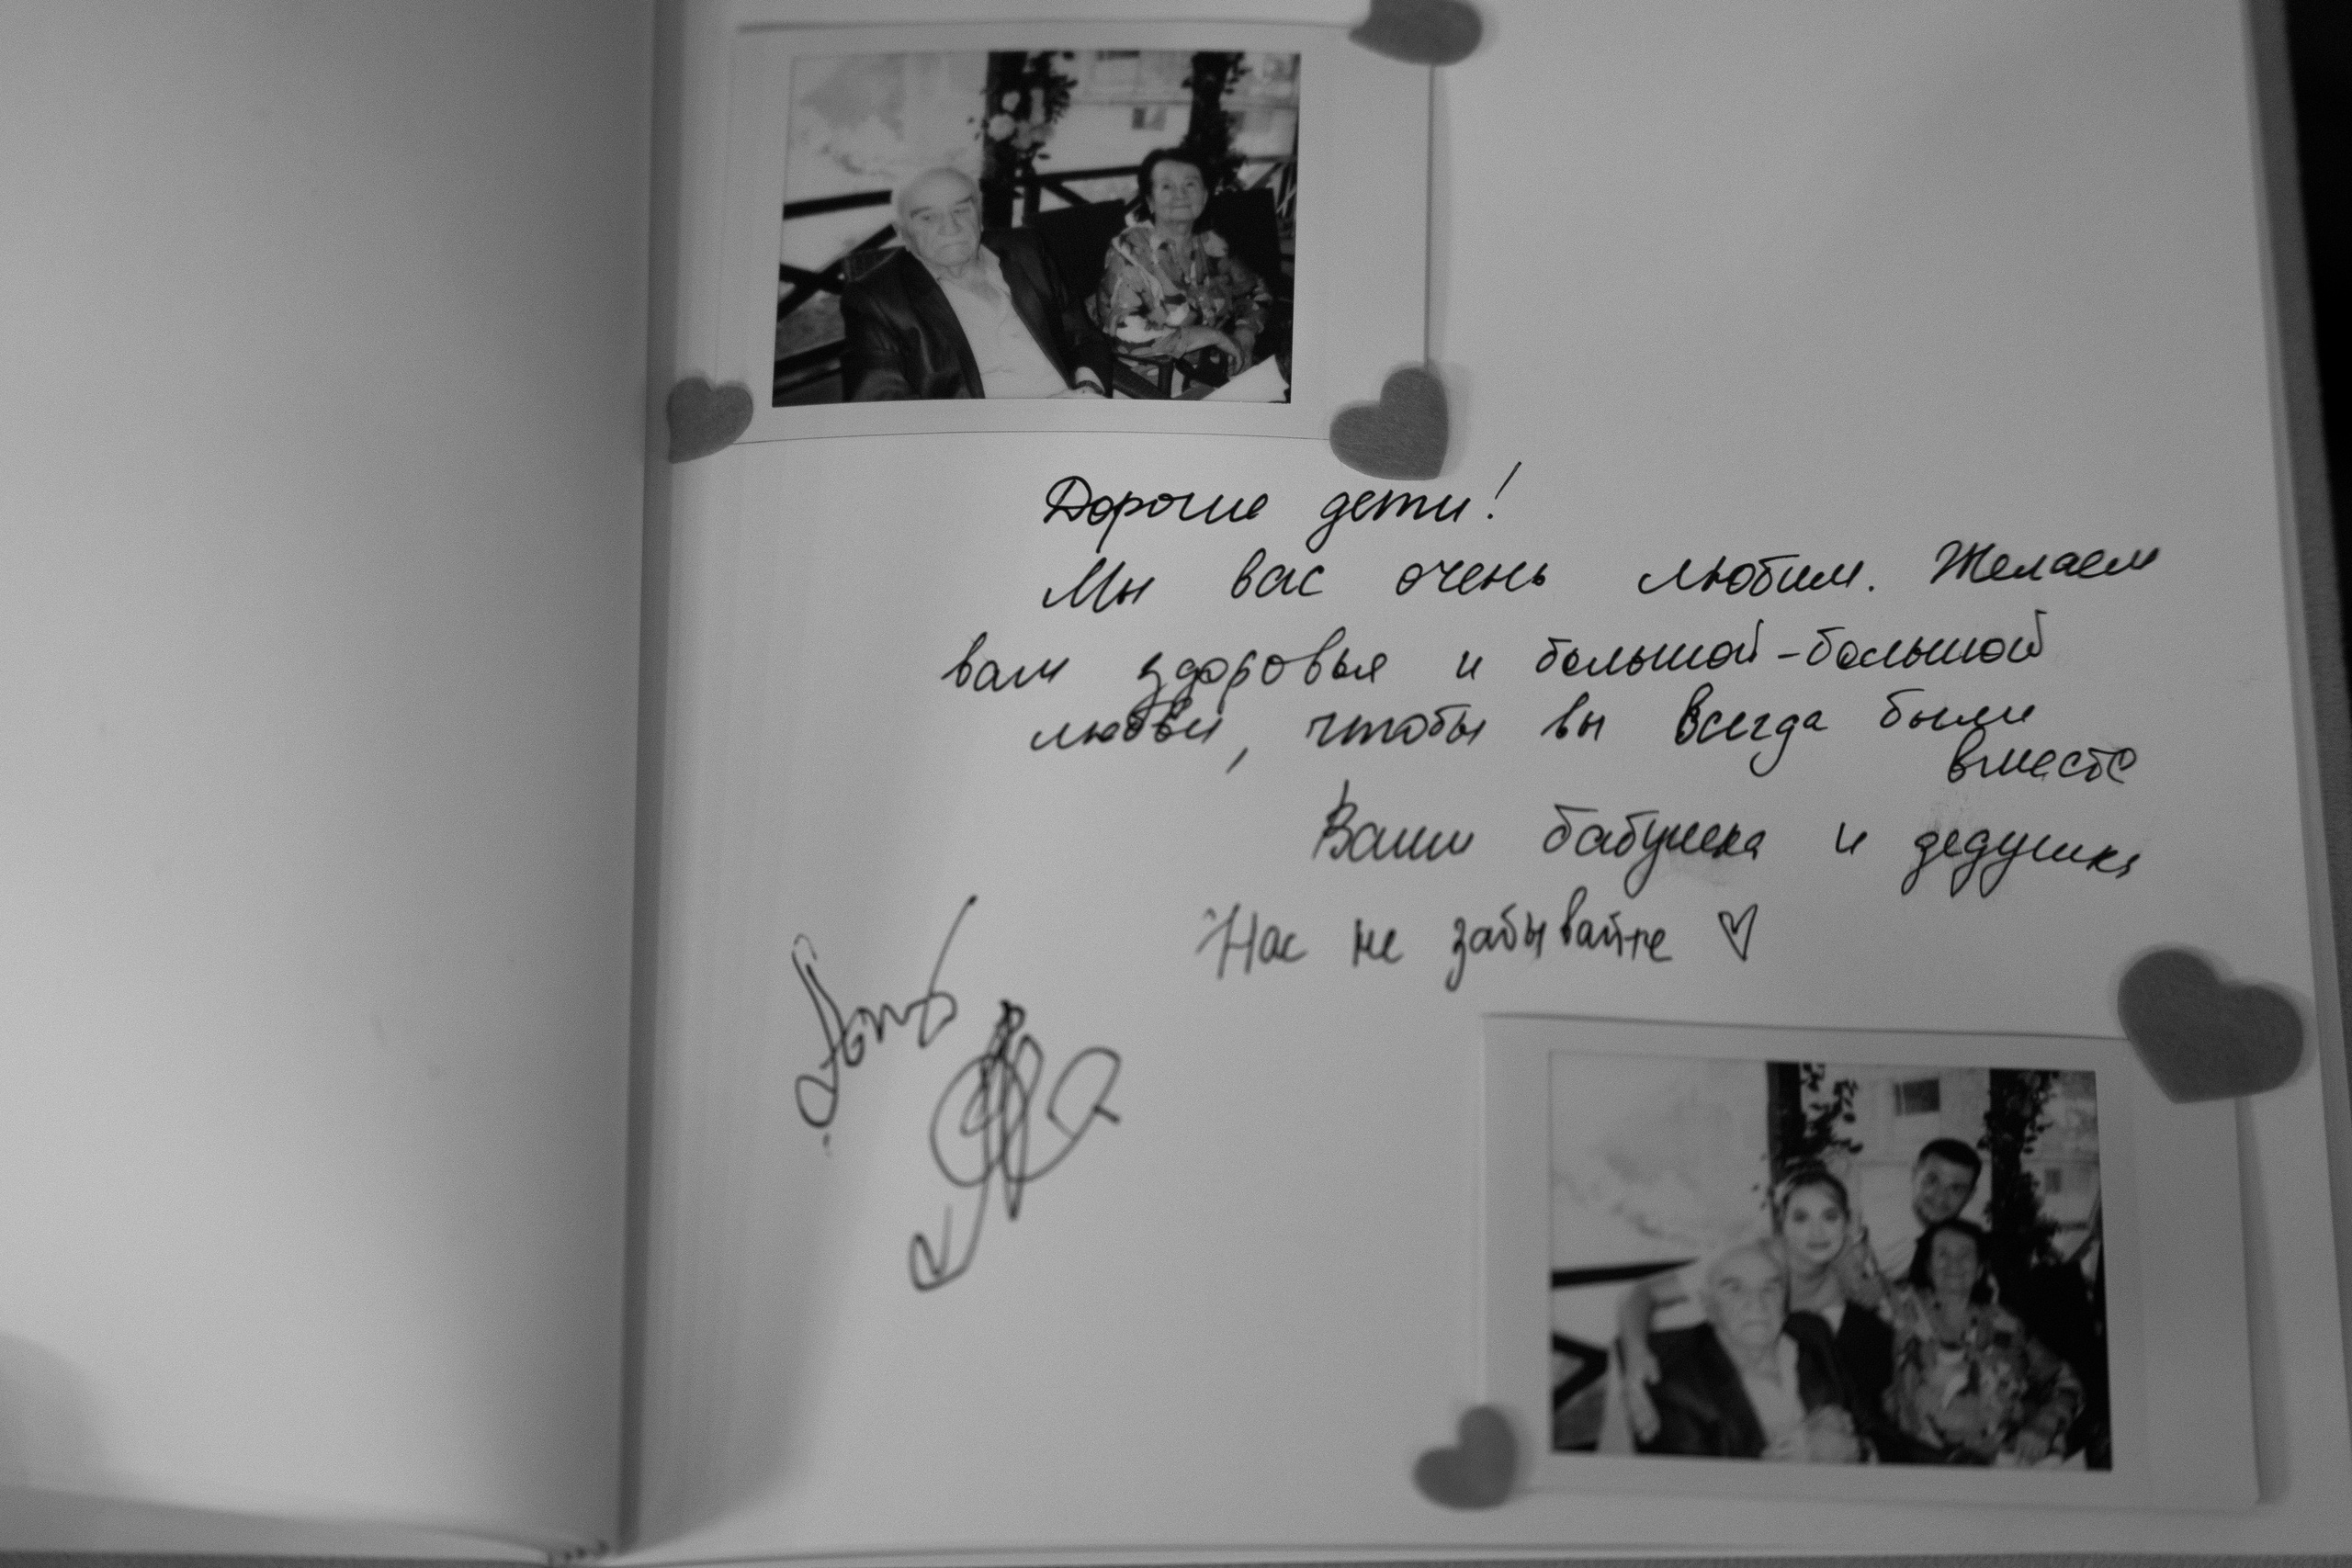 Дорогие дети!
Мы вас очень любим. Желаем
вам здоровья и большой-большой
любви, чтобы вы всегда были
вместе
Ваши бабушка и дедушка
Нас не забывайте ♡